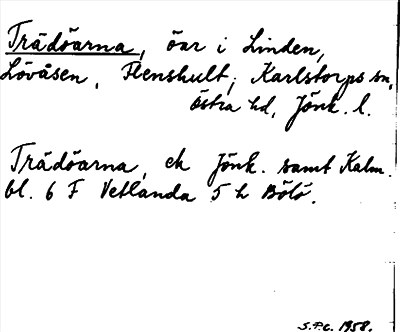 Trädöarna, öar i Linden,
Lövåsen, Flenshult, Karlstorps sn,
Östra hd, Jönk. l.
Trädöarna, ek Jönk. samt Kalm.
bl. 6 F Vetlanda 5 h Bölö.
S.F.C. 1958.